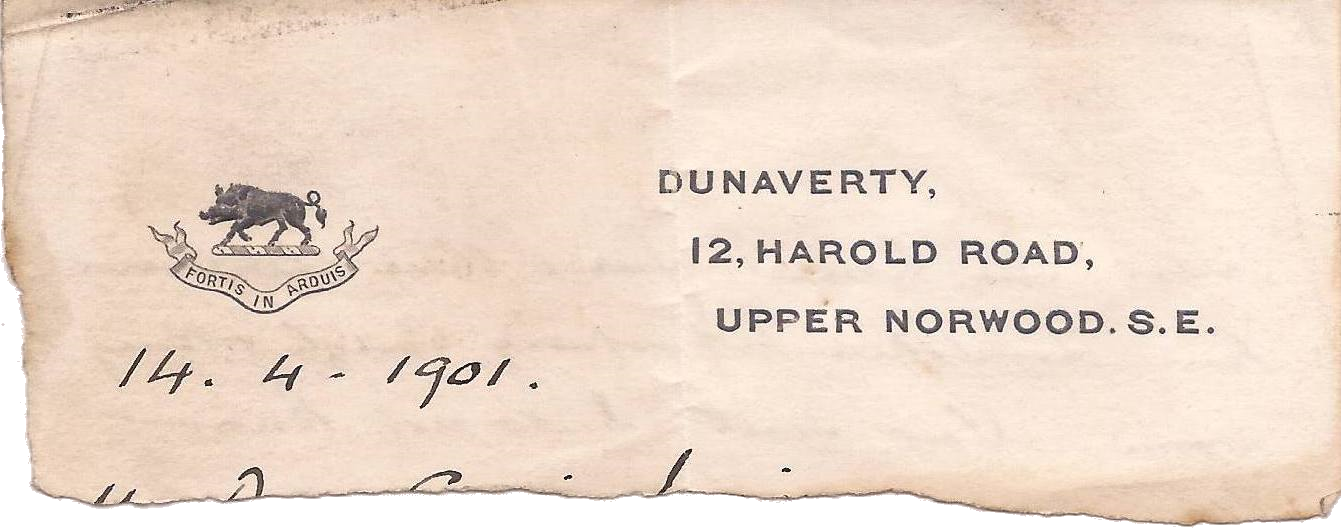 FORTIS IN ARDUIS
DUNAVERTY,
12, HAROLD ROAD,
UPPER NORWOOD. S.E.
14. 4 - 1901.